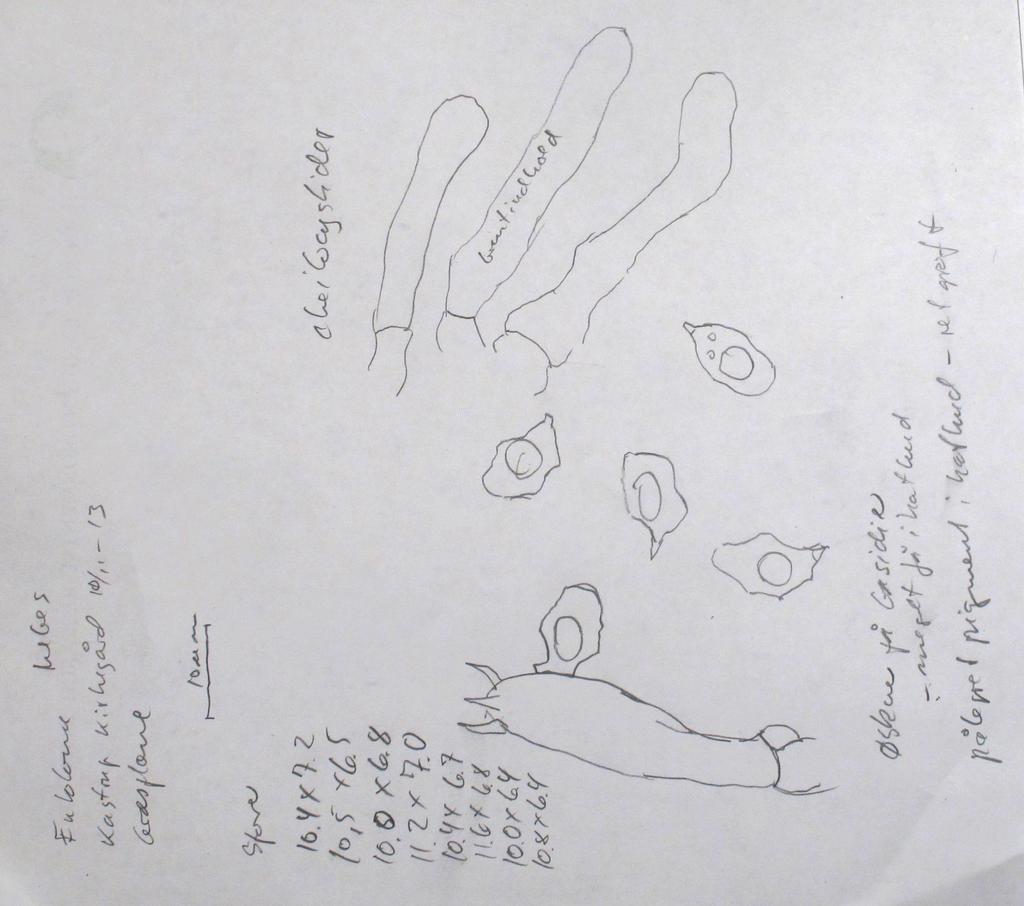 Entoloma
Kastrup Kirkegård 10/11-13
Græsplæne
10 µm
Spore
10.4 x 7.2
10,5 x 6.5
10.0 x 6.8
11.2 x 7.0
10.4 x 6.7
11.6 x 6.8
10.0 x 6.4
10.8 x 6.4
cheilocystider
brunt indhold
Øskner på basidie
- meget få i hathud
pålejret pigment i hathud - ret groft